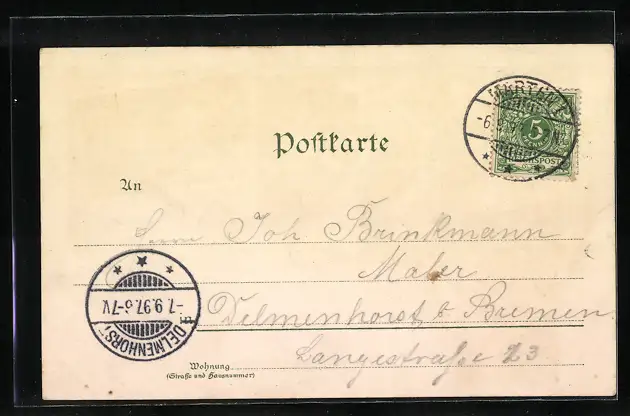 Postkarte
5
REICHSPOST
An
Herrn Joh Brinkmann
Maler
in Delmenhorst b Bremen
Langestraße 23
Wohnung
(Straße und Hausnummer)
DELMENHORST
-7.9.97.6-7V